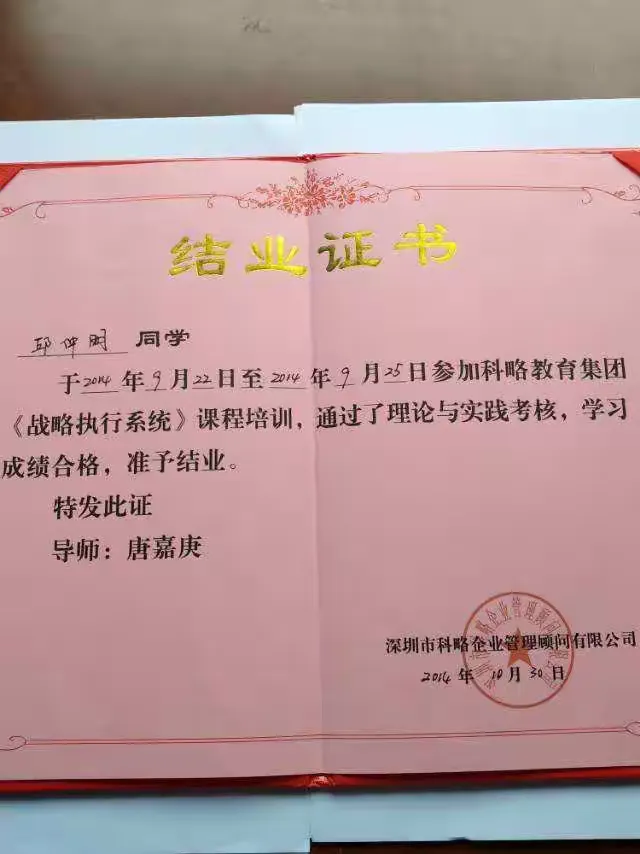 结业证书
邱仲明 同学
于2014年9月22日至2014年9月25日参加科略教育集团
《战略执行系统》课程培训，通过了理论与实践考核，学习
成绩合格，准予结业。
特发此证
导师：唐嘉庚
深圳市科略企业管理顾问有限公司
2014年10月30日